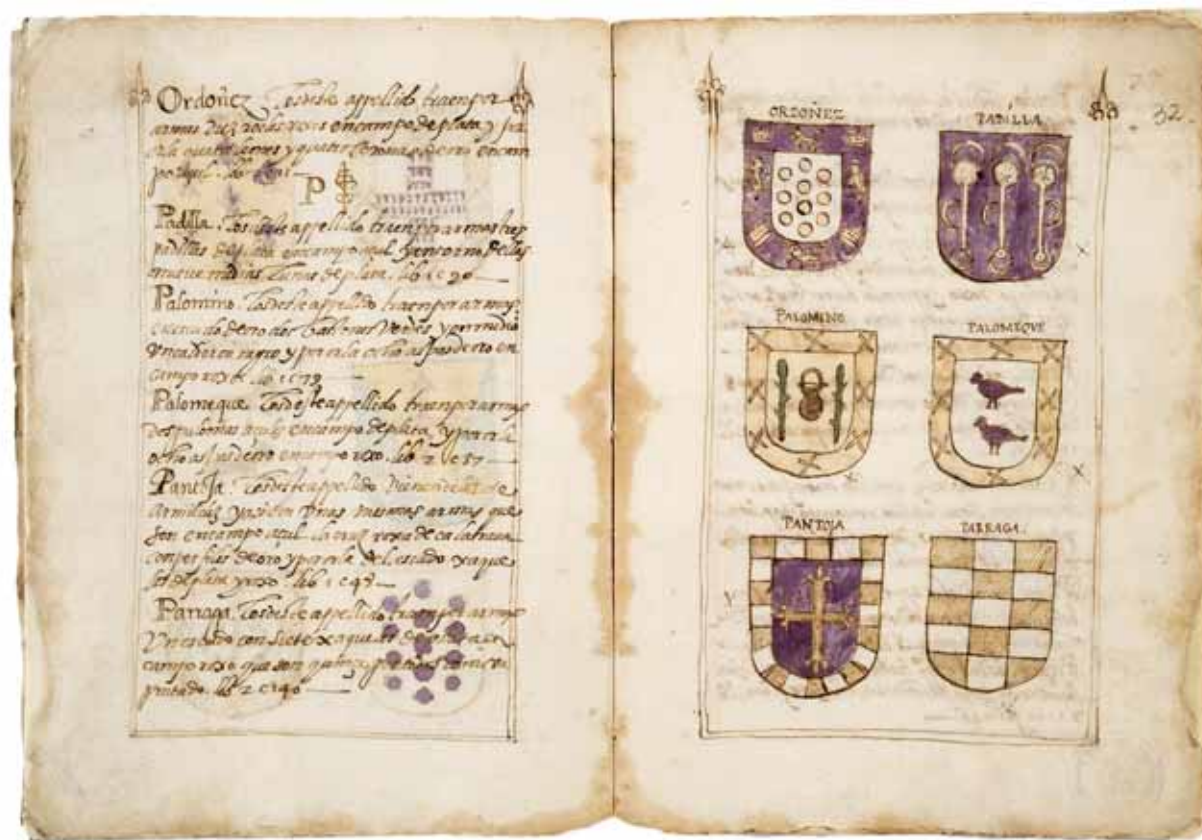 Ordoñez. Los deste appellido traen por
armas Diez roeles roxos en campo de plata y por
orla quatro leones y quatro coronas de oro en cam
po azul. lib 1 c
P
Padilla. Los deste appellido traen por armas tres
padillas de plata en campo azul y en torno dellas
nueve medias lunas de plata. lib 1 c 90
Palomino. Los deste appellido traen por armas
escudo de oro dos bastones verdes y en medio
un negro y por orla ocho aspas de oro en
campo roxo lib 1 c 79
Palomeque. Los deste appellido traen por armas
Dos palomas azules en campo de plata, y por orla
ocho aspas de oro en campo roxo. lib 2 c 57
Pantoja. Los deste appellido vienen de
y mesmas armas que
son en campo azul la cruz roxa de calatrava
con perfiles de oro y por orla del escudo xaque
les de plata y roxo. lib 1 c 48
Parraga. Los deste appellido traen por armas
Un escudo con siete xaqueles de plata en
campo roxo que son quinze
pintado. lib 2 c 140
32
ORDOÑEZ
PADILLA
PALOMINO
PALOMEQUE
PANTOJA
PARRAGA